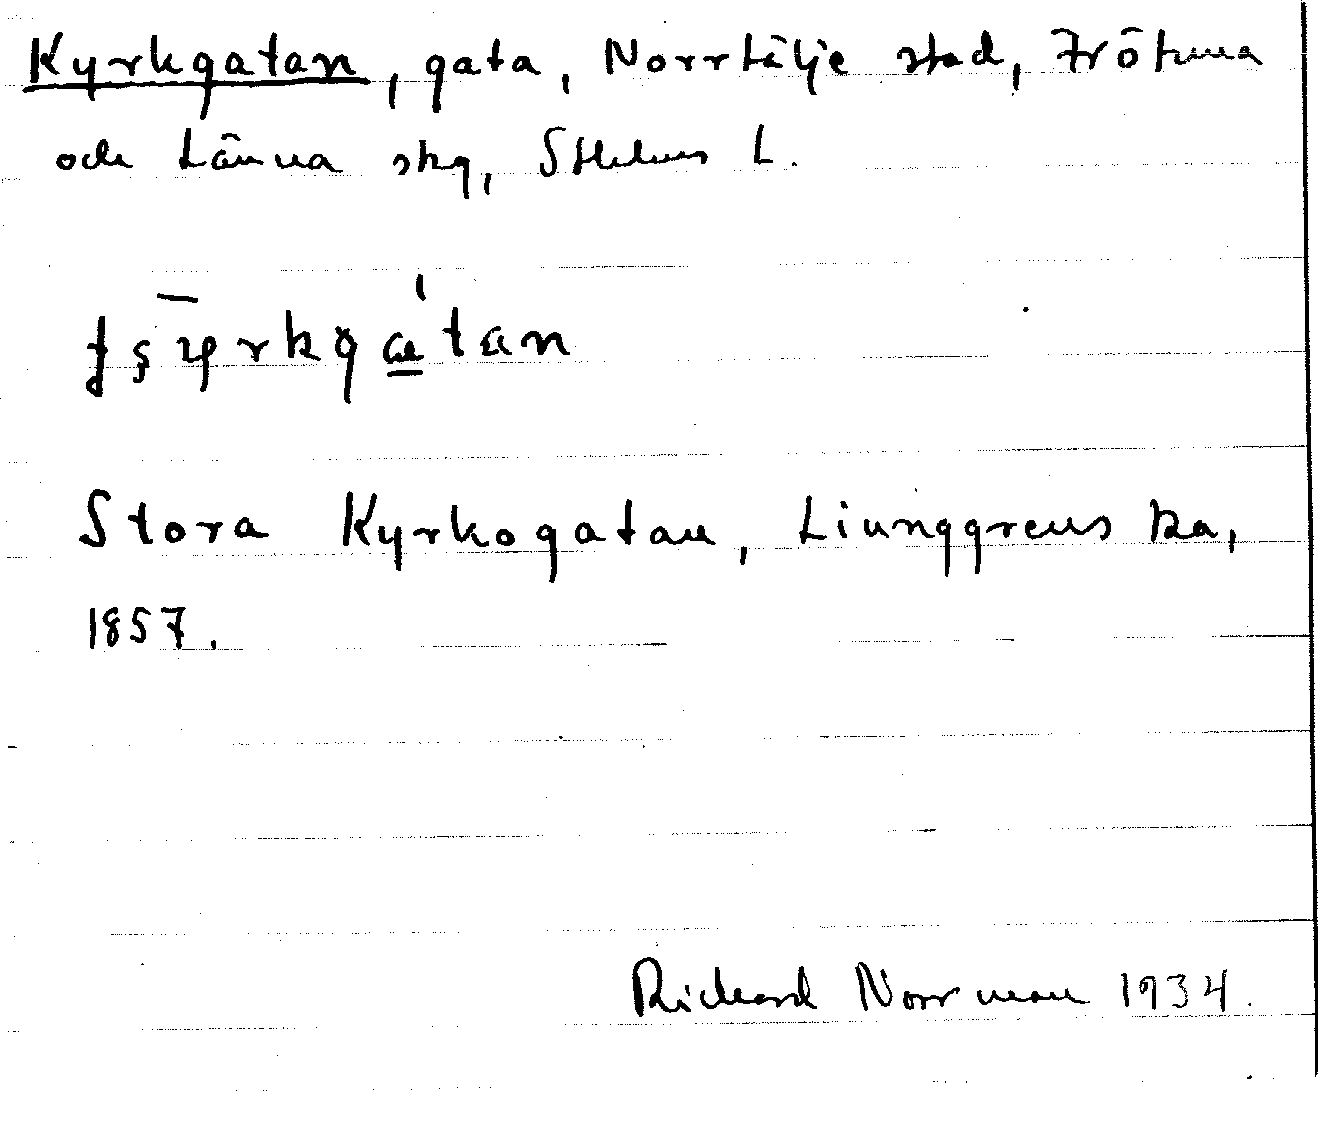 Kyrkgatan, gata, Norrtälje stad, Frötuna
och Länna skg, Sthlms L.
Stora Kyrkogatan, Liunggrens ka,
1857.
Richard Norrman 1934.